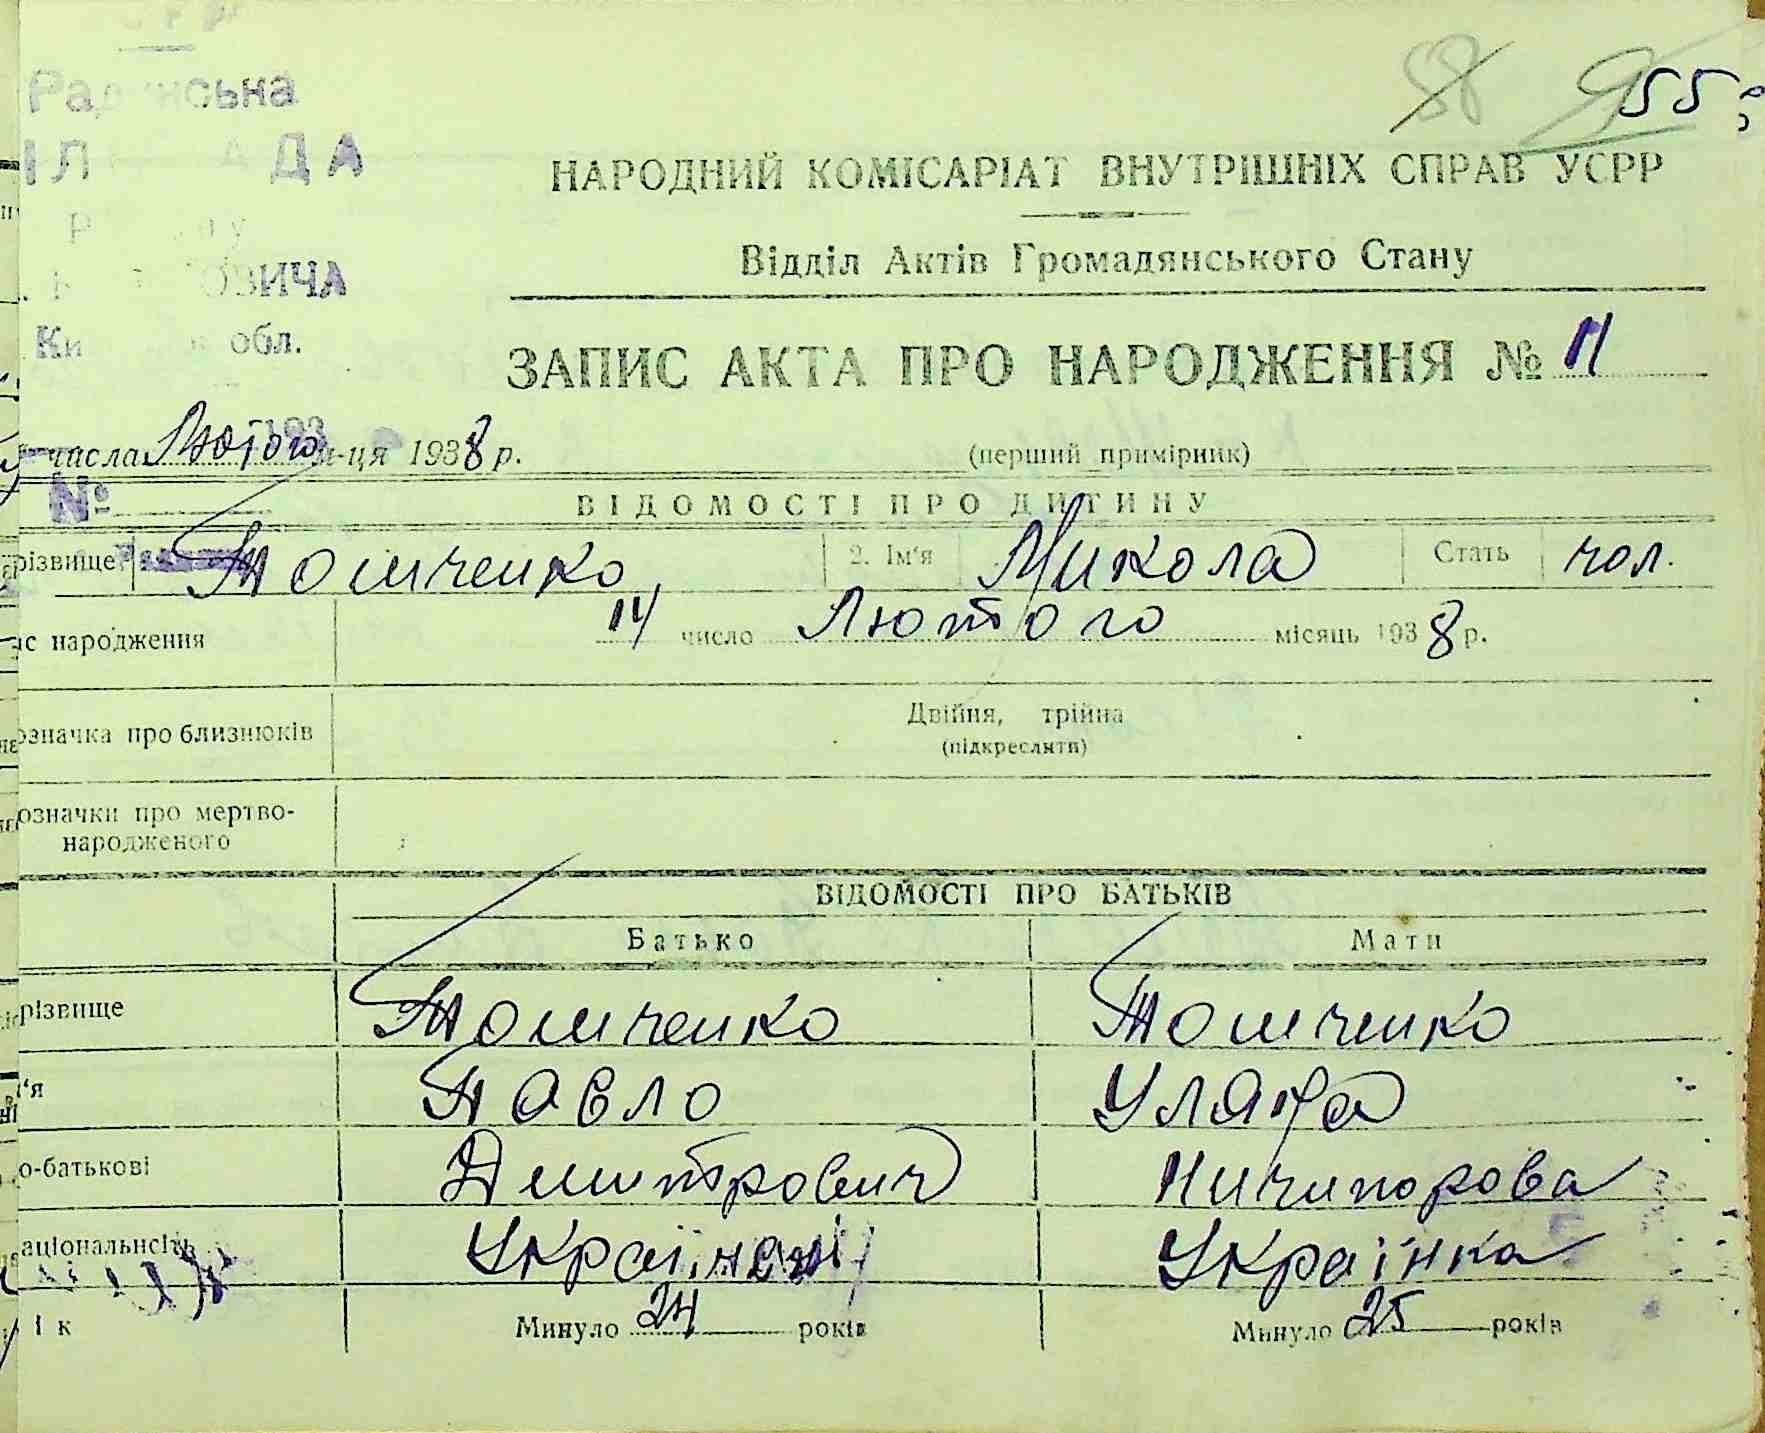 55
НАРОДНИЙ КОМІСАРІАТ ВНУТРІШНІХ СПРАВ УСРР
Відділ Актів Громадянського Стану
ОВИЧА
обл.
ЗАПИС АКТА ПРО НАРОДЖЕННЯ № 11
числа Лютого м-ця 1938 р. (перший примірник)
№
ВІДОМОСТІ ПРО ДИТИНУ
різвище Томченко 2. Ім'я Микола Стать чол.
ас народження 14 число Лютого місяць 1938 р.
означка про близнюків Двійня, трійна
(підкреслити)
означки про мертво-
народженого
ВІДОМОСТІ ПРО БАТЬКІВ
Батько Мати
різвище Томченко Томченко
м'я Павло Уляна
о-батькові Дмитрович Ничипорова
аціональність Українець Українка
ік Минуло 24 років Минуло 25 років